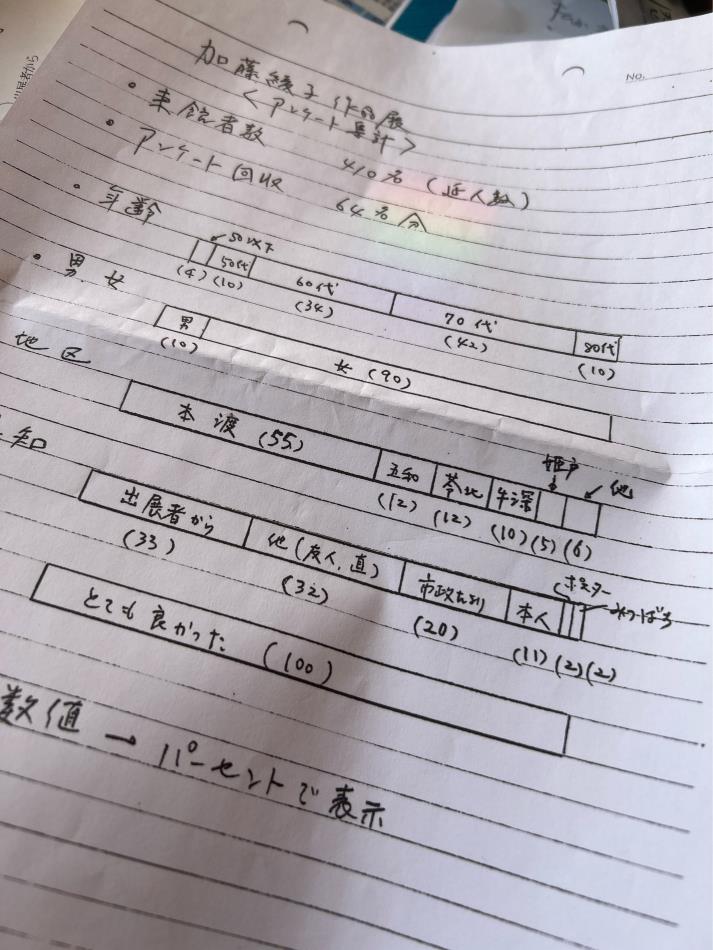 NO.
加藤綾子作品展
<アンケート集計>
・来館者数 410名(延人数)
・アンケート回収 64名分
・年齢
50以下 50代 60代 70代 80代
(4) (10) (34) (42) (10)
・男女
男 女(90)
(10)
地区
本渡(55) 五和 苓北 牛深 姫戸 他
(12) (12) (10) (5) (6)
知
出展者から 他(友人、直) 市政だより 本人 ポスター みつばち
(33) (32) (20) (11) (2) (2)
とても良かった (100)
数値→パーセントで表示
出展者から